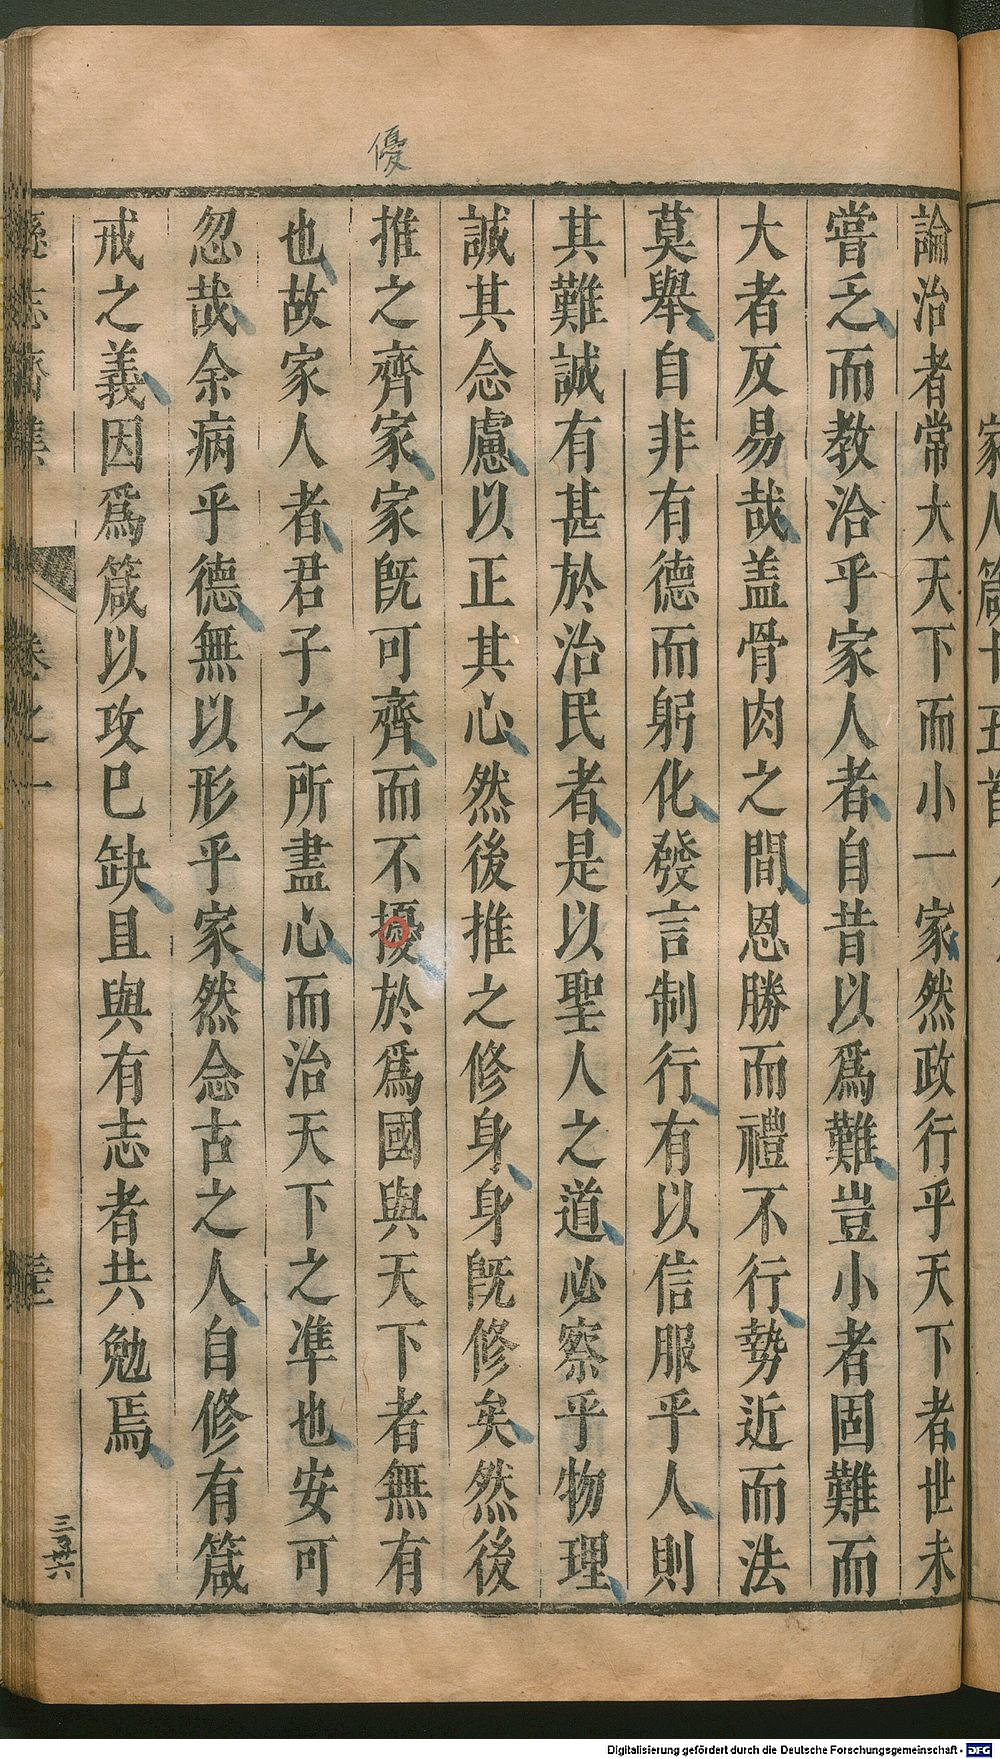 家人箴十五首
論治者常大天下而小一家然政行乎天下者世未
嘗乏而教洽乎家人者自昔以爲難豈小者固難而
大者反易哉盖骨肉之間恩勝而禮不行勢近而法
莫舉自非有德而躬化發言制行有以信服乎人則
其難誠有甚於治民者是以聖人之道必察乎物理
誠其念慮以正其心然後推之修身身既修矣然後
推之齊家家既可齊而不擾於爲國與天下者無有
優
也故家人者君子之所盡心而治天下之凖也安可
忽哉余病乎德無以形乎家然念古之人自修有箴
戒之義因爲箴以攻已缺且與有志者共勉焉
卷之一
Digitalisierung gefördert durch die Deutsche Forschungsgemeinschaft - DFG